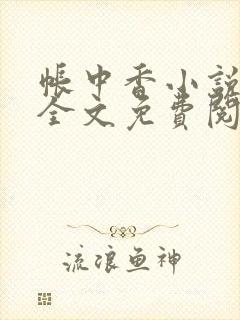 帐中香小说
全文免费阅
流浪鱼神